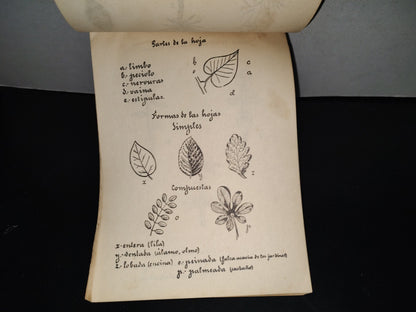 Partes de la hoja
a. limbo
b. peciolo
c. nervouras
d. vaina
e. estipulas
b c
e a
d
Formas de las hojas
Simples
x z
Compuestas
p.
x. entera (lila)
y. dentada (álamo, olmo)
z. lobada (encina) o. peinada (falsa acacia de los jardines)
p. palmeada (castaño)